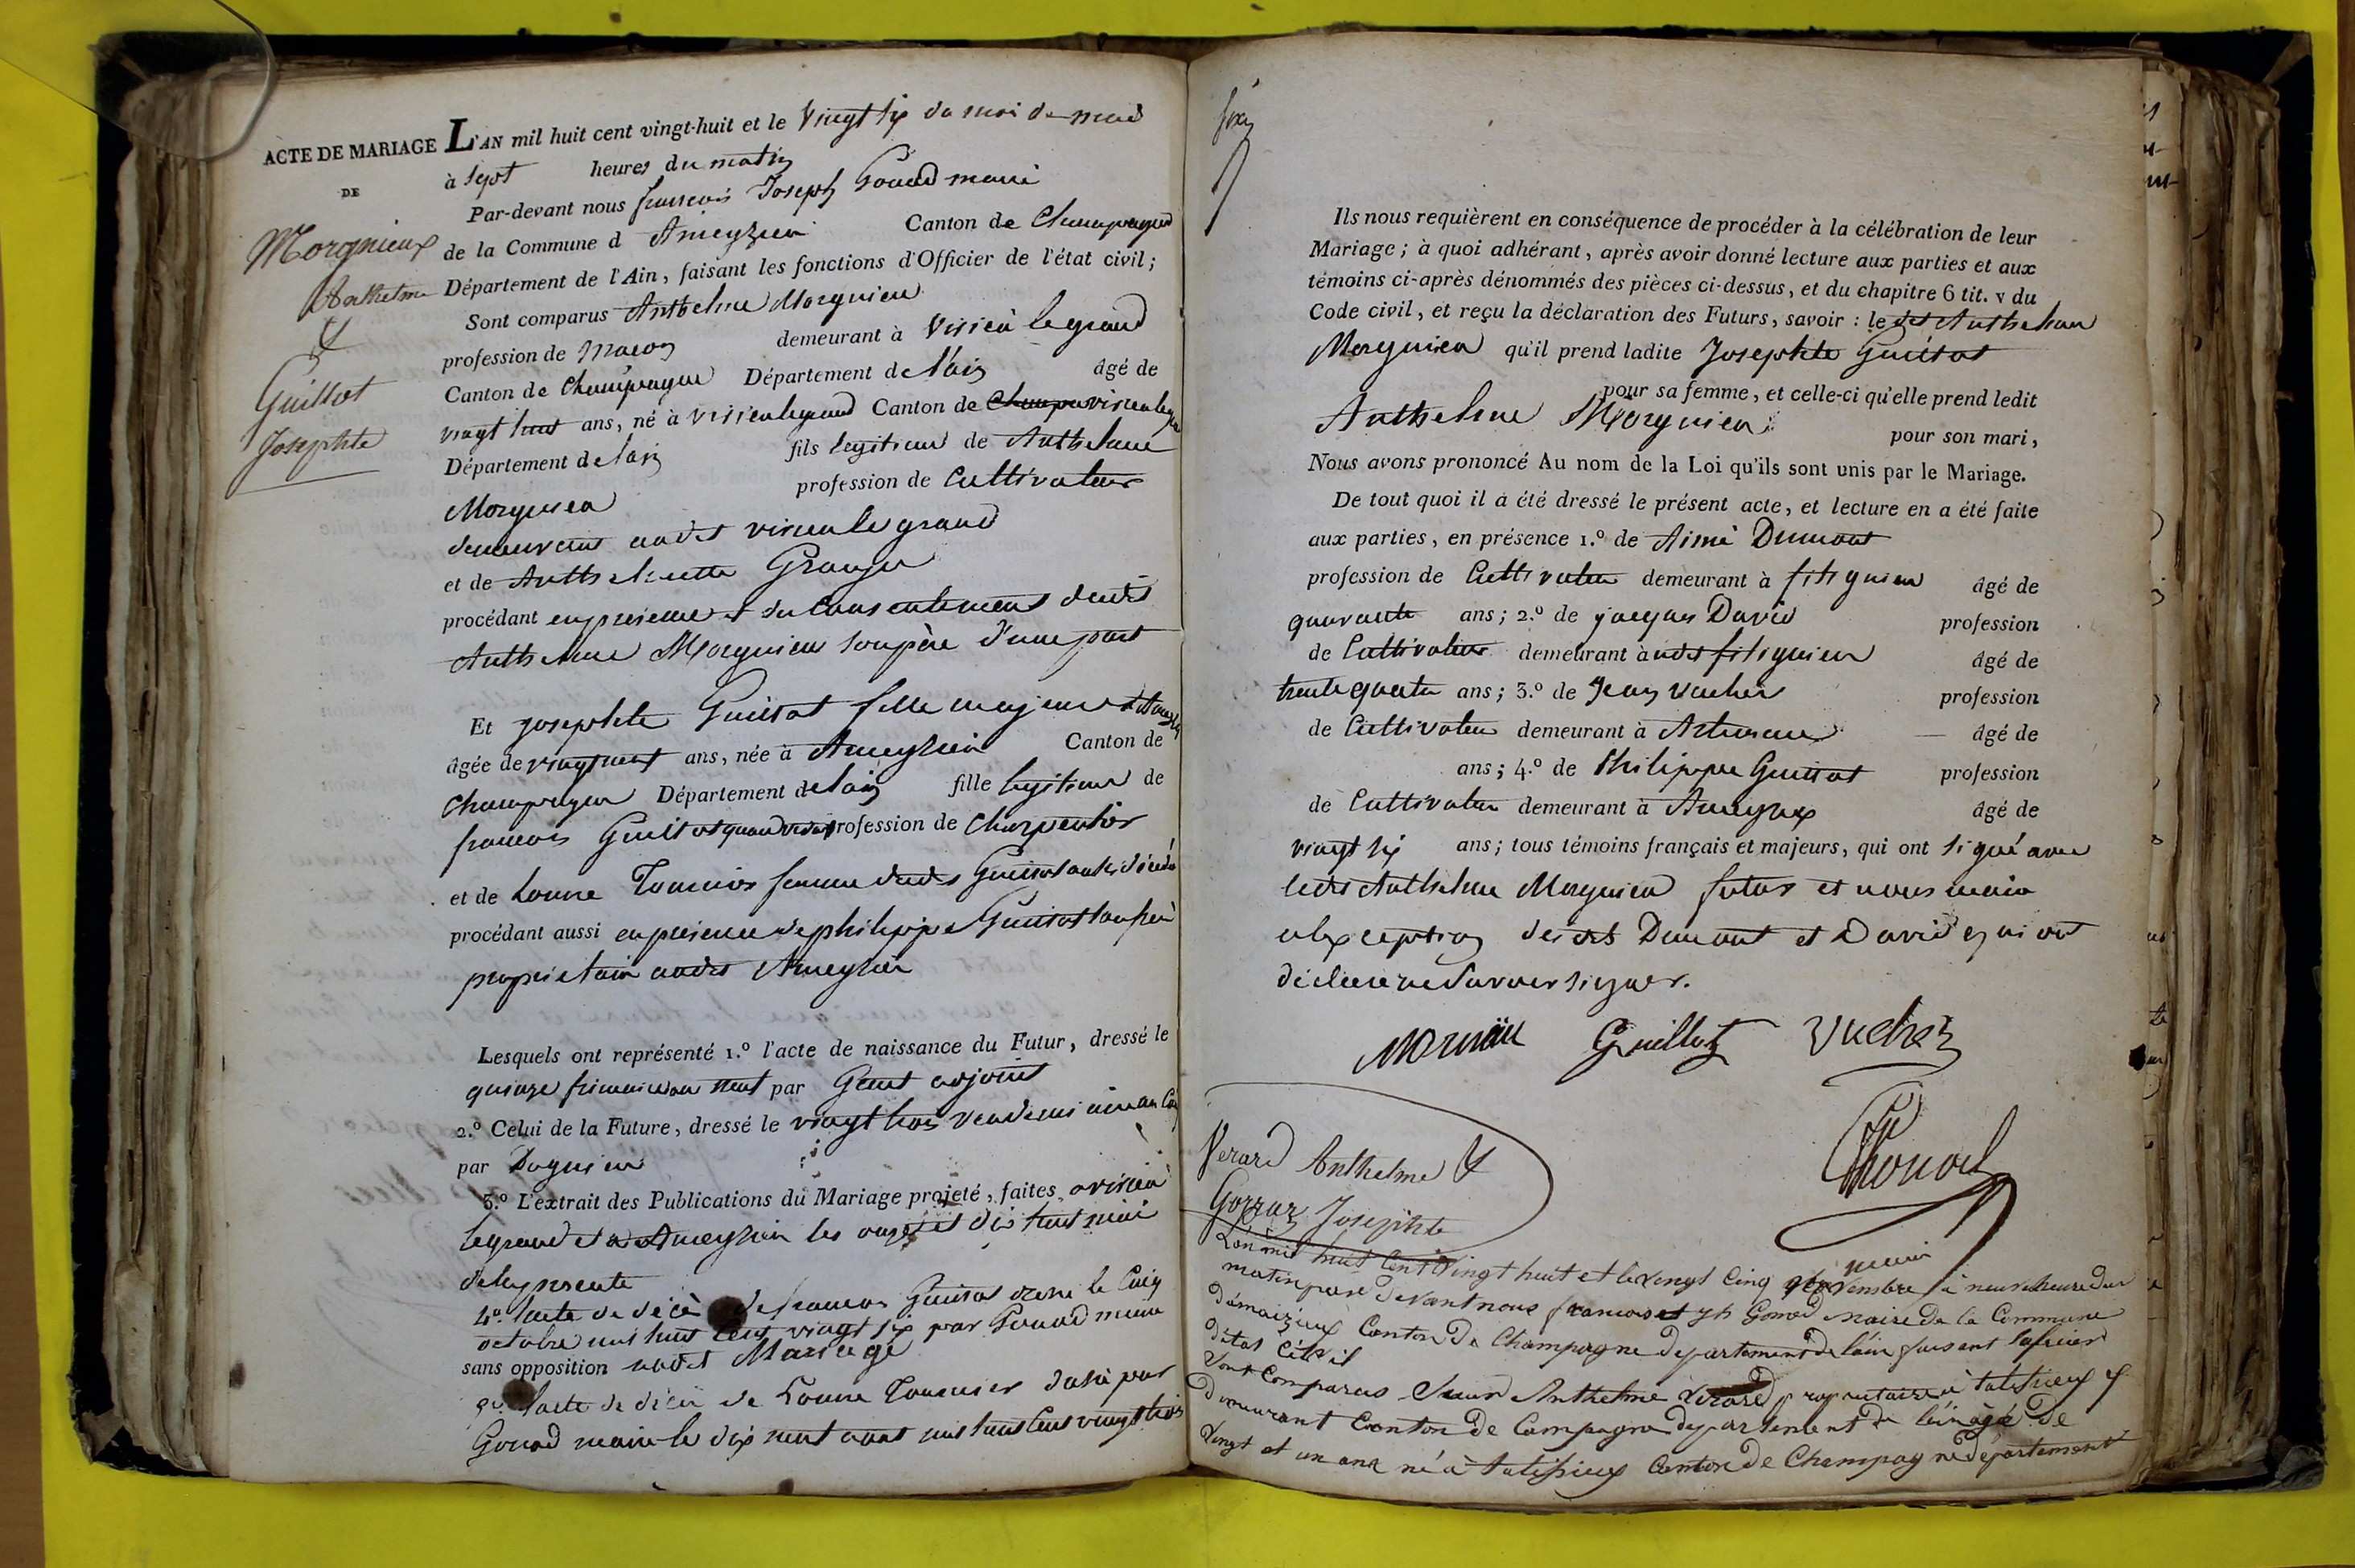 ACTE DE MARIAGE
DE
Morgnieux
Anthelme
&
Guillot
Josephte
L'AN mil huit cent vingt-huit et le vingt six du moi de mai
à sept heures du matin
Par-devant nous francois Joseph Gonod maire
de la Commune d Ameyzieu Canton de Champagne
Département de l'Ain, faisant les fonctions d'Officier de l'état civil;
Sont comparus Anthelme Morgnieu
profession de Macon demeurant à Virieu le grand
Canton de Champagne Département de l'ain âgé de
vingt huit ans, né à virieu legrand Canton de virieu legr
Département de lain fils legitime de Anthelme
Morgnieu profession de Cultivateur
demeurant audit virieu le grand
et de Anthelmette Granger
procédant en presence et du Consentement dudit
Anthelme Morgnieu son père d'une part
Et josephte Guillot fille majeure
âgée de vingt neuf ans, née à Ameyzieu Canton de
Champagne Département de lain fille legitime de
francois Guillot quand vivait profession de Charpentier
et de Louise Tournier femme dudit Guillot aussi décédée
procédant aussi en presence de philippe Guillot son frere
proprietaire audit Ameyzieu
Lesquels ont représenté 1.º l'acte de naissance du Futur, dressé le
quinze frimaire an neuf par Genet adjoint
2.º Celui de la Future, dressé le vingt trois vendemiaire an
par Doguieu
3.º L'extrait des Publications du Mariage projeté, faites a virieu
legrand et a Ameyzieu les onze et dix huit mai
4.º lacte de décè de francois Guillot le Cinq
octobre mil huit cent vingt six par Gonod maire
sans opposition audit Mariage
lacte de décè de Louise Tournier par
Gonod maire le dix neuf aout mil huit cent vingt trois
Ils nous requièrent en conséquence de procéder à la célébration de leur
Mariage; à quoi adhérant, après avoir donné lecture aux parties et aux
témoins ci-après dénommés des pièces ci-dessus, et du chapitre 6 tit. v du
Code civil, et reçu la déclaration des Futurs, savoir: le dit Anthelme
Morgnieu qu'il prend ladite Josephte Guillot
pour sa femme, et celle-ci qu'elle prend ledit
Anthelme Morgnieu pour son mari,
Nous avons prononcé Au nom de la Loi qu'ils sont unis par le Mariage.
De tout quoi il a été dressé le présent acte, et lecture en a été faite
aux parties, en présence 1.º de Aimé Dumont
profession de Cultivateur demeurant à fitignieu âgé de
quarante ans; 2.º de jacques David profession
de Cultivateur demeurant à udit fitignieu âgé de
trente quatre ans; 3.º de Jean vucher profession
de Cultivateur demeurant à Artemare âgé de
ans; 4.º de Philippe Guillot profession
de Cultivateur demeurant à Ameyzieux âgé de
vingt six ans; tous témoins français et majeurs, qui ont signé avec
ledit Anthelme Morgnieu futur et nous maire
a l'exception desdits Dumont et David qui ont
déclaré ne savoir signer.
Guillot Vucher
Gonod
Verard Anthelme &
Gojjoz Josephte
L'an mil huit cent vingt huit et le vingt Cinq novembre à neuf heure du
matin par devant nous francois jh Gonod maire de la Commune
damaizieux Canton de Champagne departement de lain faisant
d'état Civil
Sont Comparus Sieur Anthelme Verard proprietaire à talissieux y
demeurant Canton de Campagne departement de lain âgé de
vingt et un ans né à talissieux Canton de Champagne département